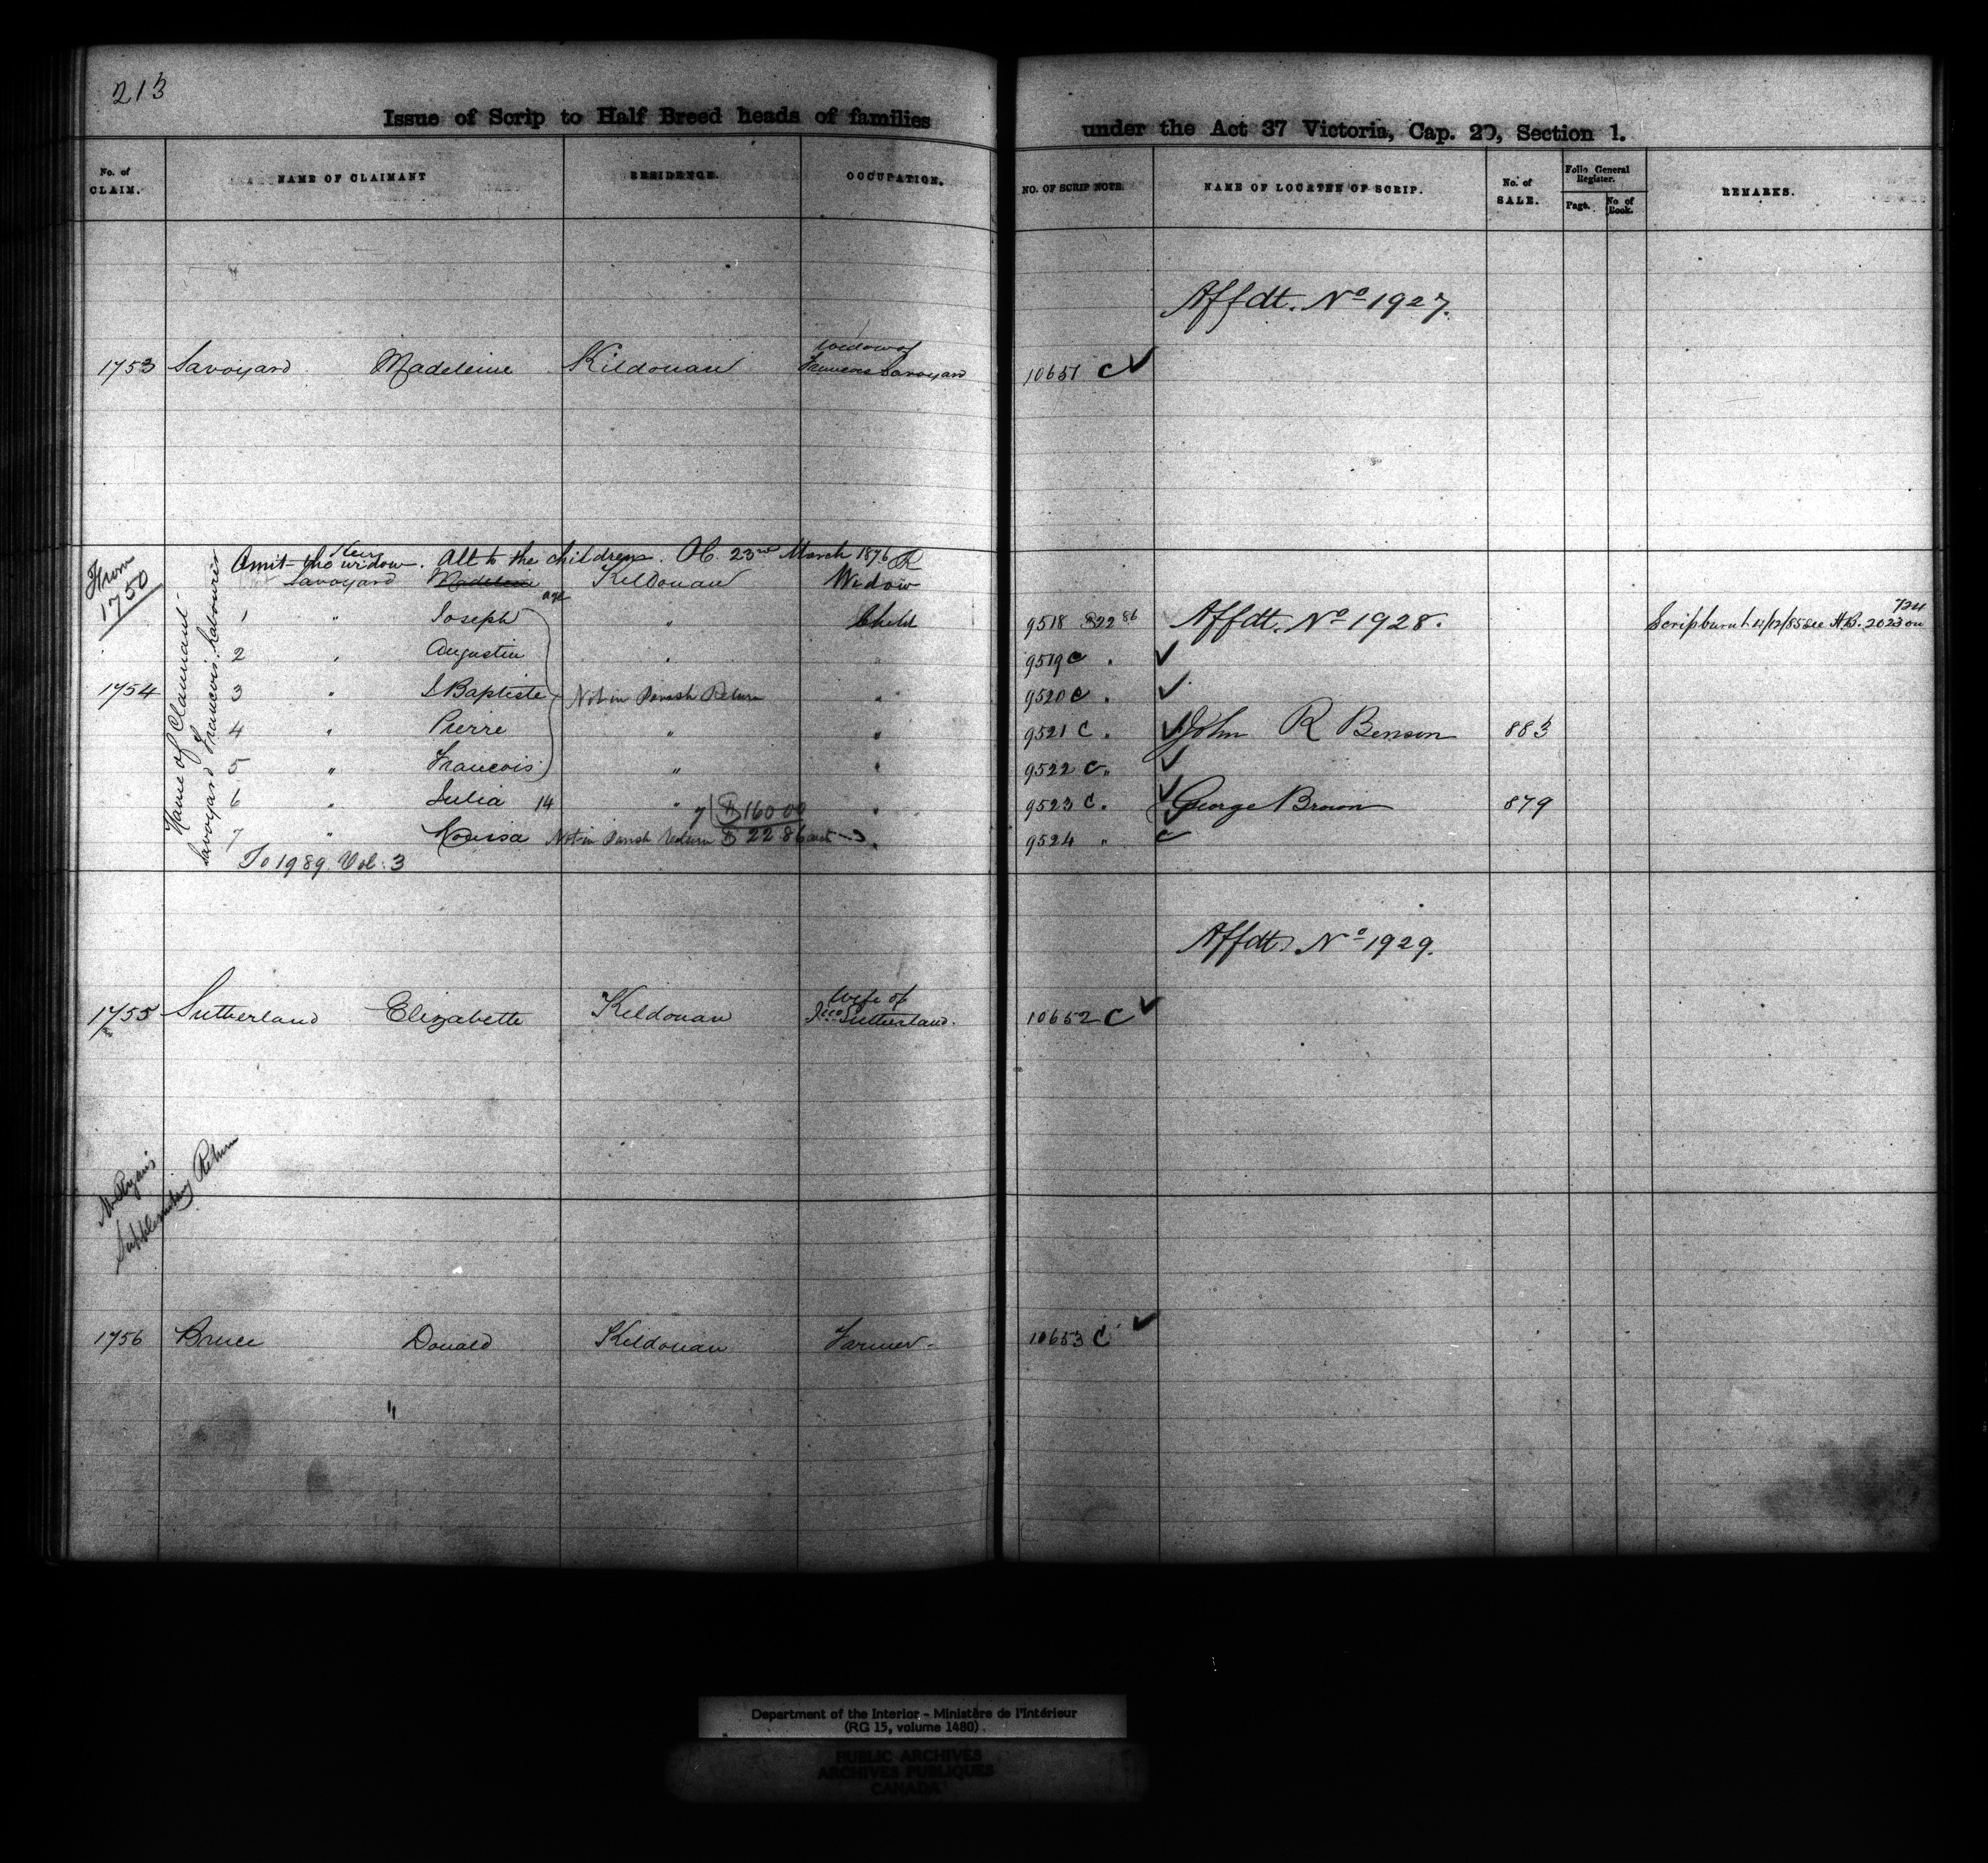 213
Issue of Scrip to Half Breed heads of families under the Act 37 Victoria, Cap. 20, Section 1.
No. of CLAIM. NAME OF CLAIMANT RESIDENCE. OCCUPATION. NO. OF SCRIP NOTE NAME OF LOCATEE OF SCRIP. No. of SALE. Folio General Register. Page. No of Book. REMARKS.
Affdt. No 1927.
Widow of
1753 Savoyard Madeleine Kildonan Francois Savoyard 10651 C ✓
From 1750
Name of Claimant
Savoyard Francois, Labourer
Omit the widow. All to the children. O.C. 23rd March 1876
Savoyard Madeleine Kildonan Widow
age
1 " Joseph " Child 9518 $22 86 Affdt. No 1928. Scrip burnt 11/12/85 see H.B. 2023 on
2 " Augustin " " 9519 C " ✓
1754 3 " J Baptiste Not in Parish Return " 9520 C " ✓
4 " Pierre " " 9521 C " ✓ John R Benson 883
5 " Francois " " 9522 C " ✓
6 " Julia 14 " 7 | $160 00 " 9523 C " ✓ George Brown 879
7 " Not in Parish Return $ 22.86 each " 9524 "
To 1989. Vol. 3
Affdt. No 1929.
Wife of
1755 Sutherland Elizabette Kildonan Sutherland. 10652 C ✓
Mr Ryan's
Supplementary Return
1756 Bruce Donald Kildonan Farmer 10653 C ✓
"
Department of the Interior - Ministère de l'Intérieur
(RG 15, volume 1480)
PUBLIC ARCHIVES
ARCHIVES PUBLIQUES
CANADA